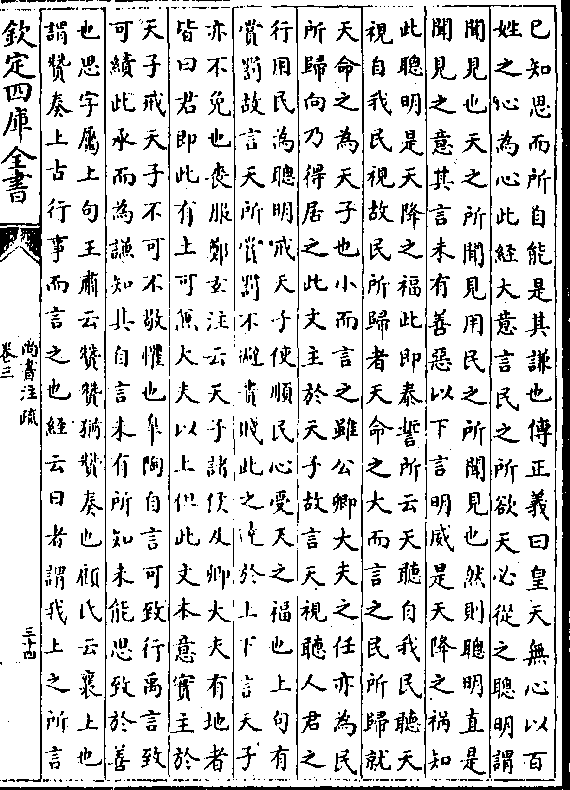 已知思而所自能是其謙也傳正義曰皇天無心以百
姓之心為心此經大意言民之所欲天必從之聰明謂
聞見也天之所聞見用民之所聞見也然則聰明直是
聞見之意其言未有善惡以下言明威是天降之禍知
此聰明是天降之福此即泰誓所云天聽自我民聽天
視自我民視故民所歸者天命之大而言之民所歸就
天命之為天子也小而言之雖公卿大夫之任亦為民
所歸向乃得居之此文主於天子故言天視聽人君之
行用民為聰明戒天子使順民心受天之福也上句有
賞罰故言天所賞罰不避貴賤此之達於上下言天子
亦不免也喪服鄭玄注云天子諸侯及卿大夫有地者
皆曰君即此有土可兼大夫以上但此文本意實主於
天子戒天子不可不敬懼也臯陶自言可致行禹言致
可績此承而為謙知其自言未有所知未能思致於善
也思字屬上句王肅云贊贊猶贊奏也顧氏云襄上也
謂贊奏上古行事而言之也經云曰者謂我上之所言
欽定四庫全書
尚書注疏
卷三
三十四